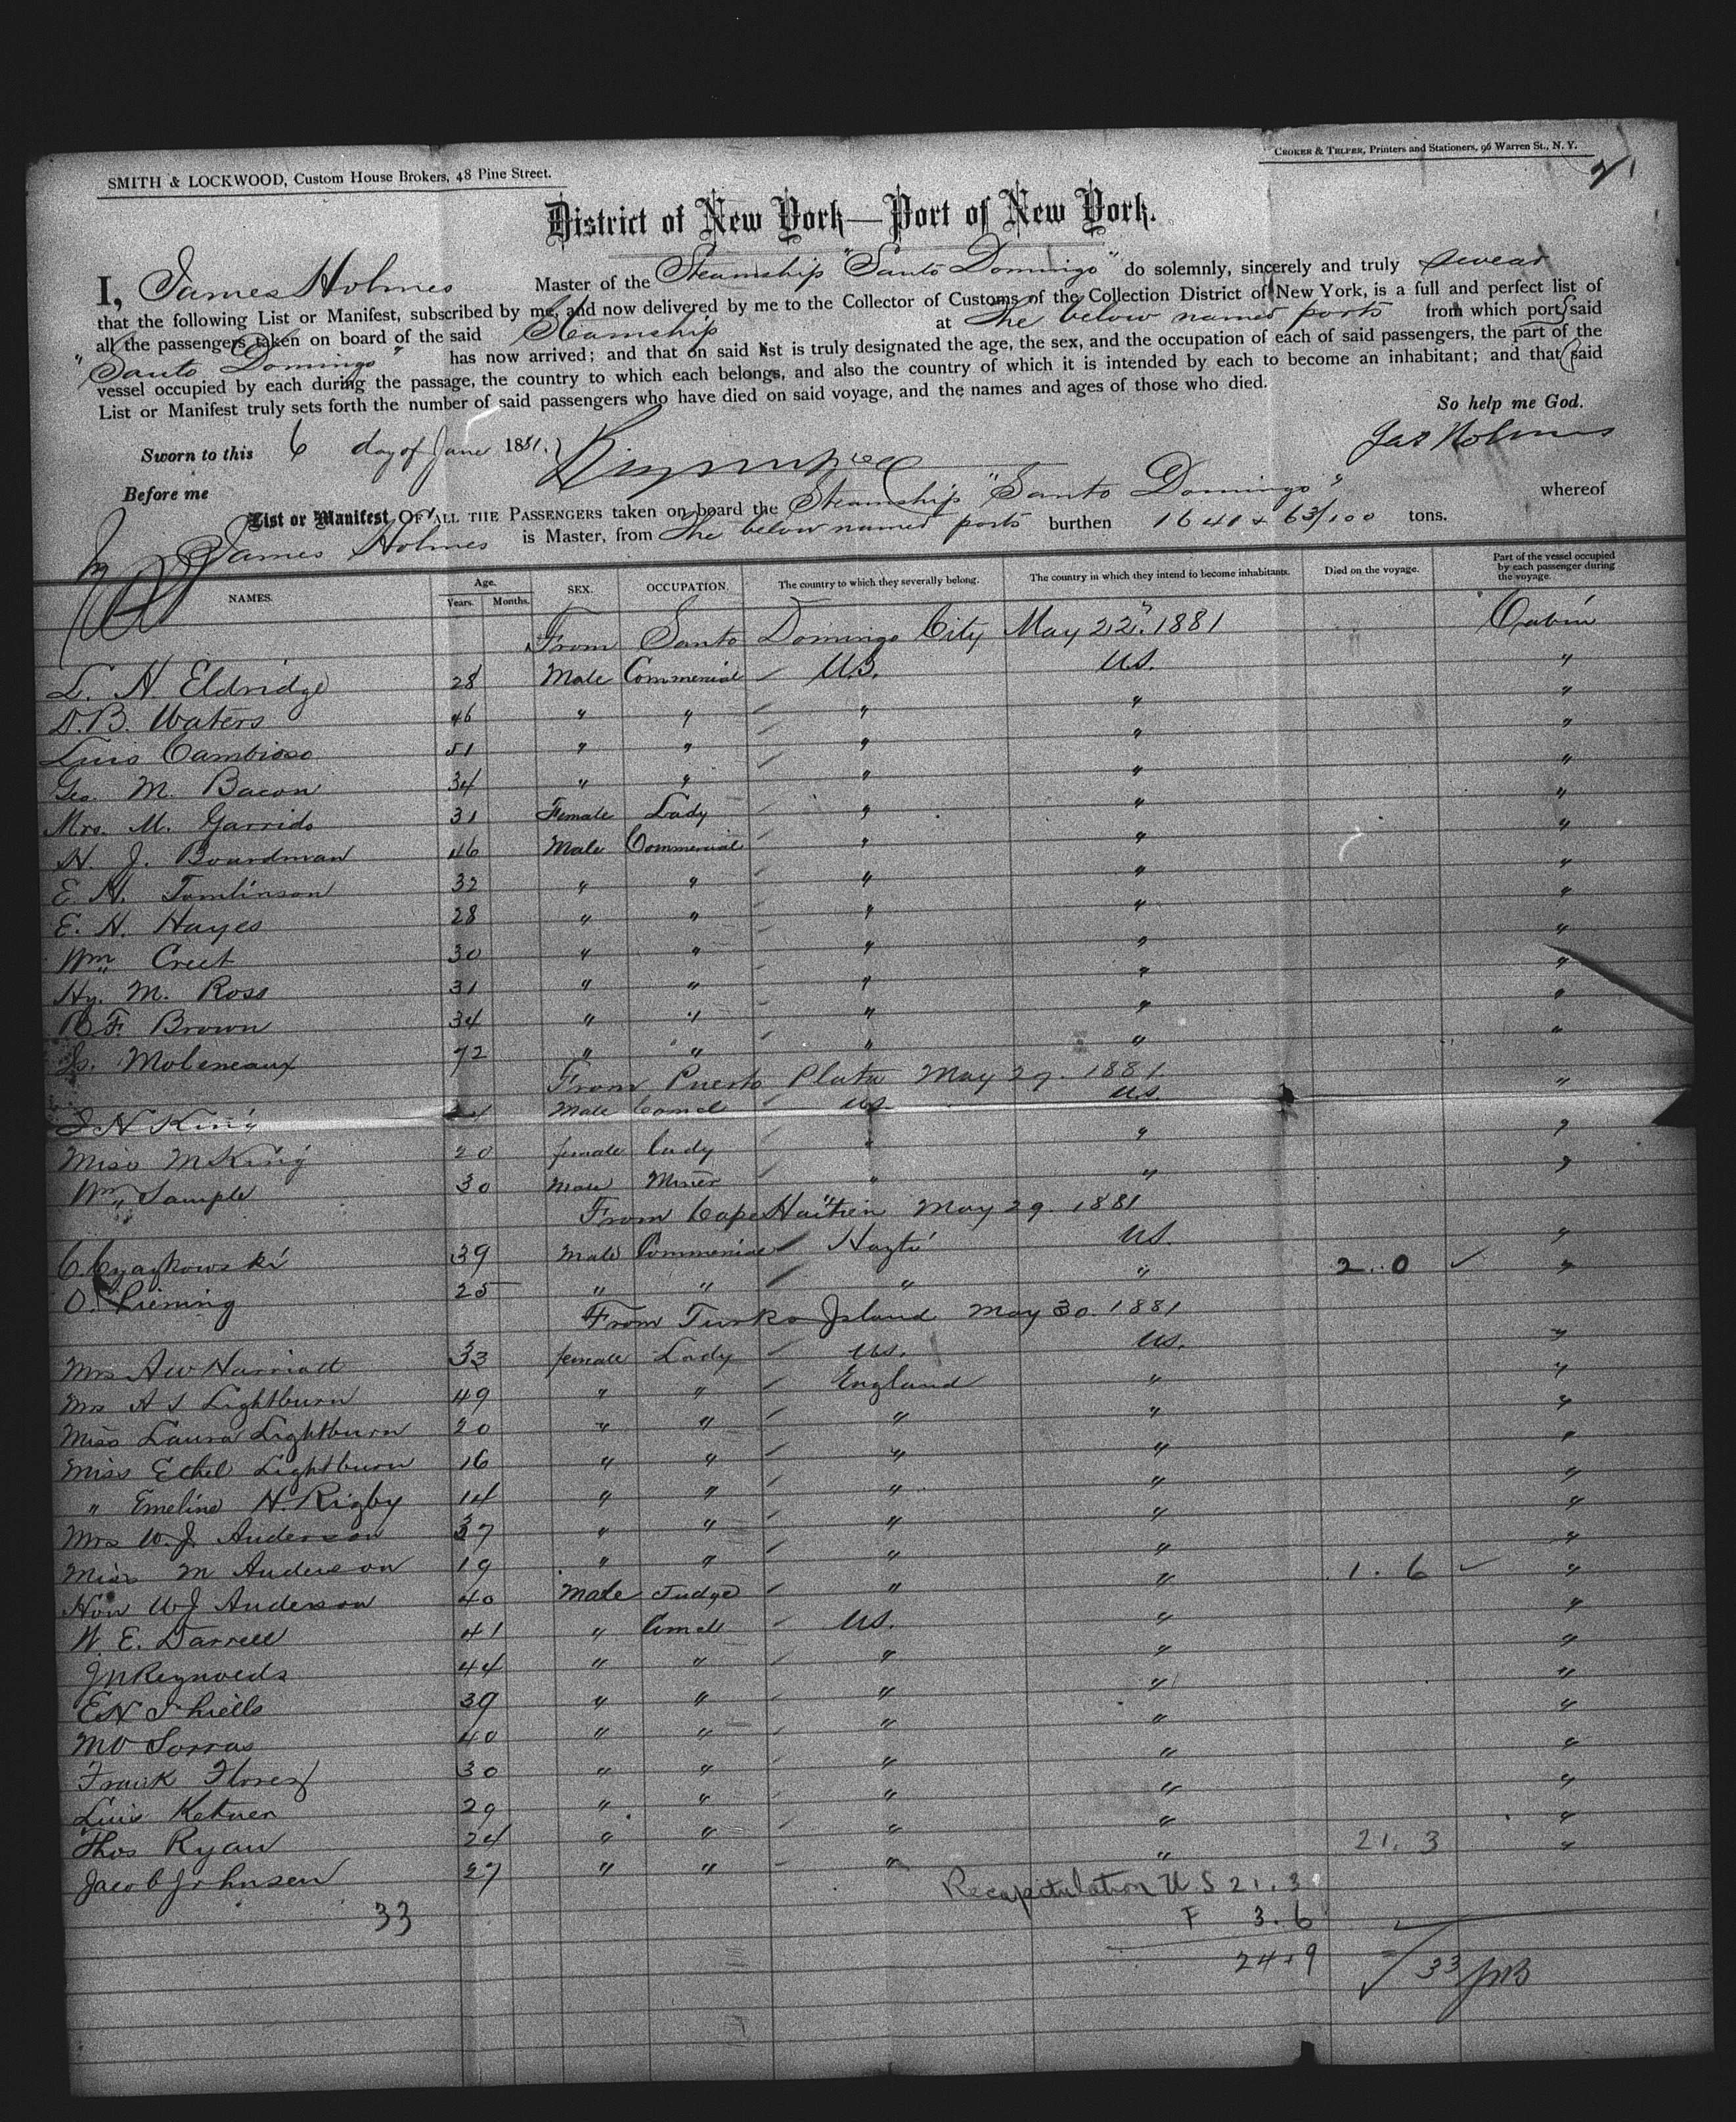 SMITH & LOCKWOOD, Custom House Brokers, 48 Pine Street.
CROKER & TELFER, Printers and Stationers, 96 Warren St., N. Y.
District of New York—Port of New York.
I, James Holmes Master of the Steamship "Santo Domingo" do solemnly, sincerely and truly swear
that the following List or Manifest, subscribed by me, and now delivered by me to the Collector of Customs of the Collection District of New York, is a full and perfect list of
all the passengers taken on board of the said Steamship at the below named ports from which port said
"Santo Domingo" has now arrived; and that on said list is truly designated the age, the sex, and the occupation of each of said passengers, the part of the
vessel occupied by each during the passage, the country to which each belongs, and also the country of which it is intended by each to become an inhabitant; and that said
List or Manifest truly sets forth the number of said passengers who have died on said voyage, and the names and ages of those who died.
So help me God.
Sworn to this 6 day of June 1881. Jas Holmes
Before me
List or Manifest OF ALL THE PASSENGERS taken on board the Steamship "Santo Domingo" whereof
James Holmes is Master, from the below named ports burthen 1640 63/100 tons.
NAMES. Age. Years. Months. SEX. OCCUPATION. The country to which they severally belong. The country in which they intend to become inhabitants. Died on the voyage. Part of the vessel occupied by each passenger during the voyage.
From Santo Domingo City May 22" 1881 Cabin
L. H. Eldridge 28 Male Commercial U.S. U.S. "
D. B. Waters 46 " " " " "
Luis Cambioso 51 " " " " "
Geo. M. Bacon 34 " " " " "
Mrs. M. Garrido 31 Female Lady " " "
H. J. Boardman 46 Male Commercial " " "
E. H. Tomlinson 32 " " " " "
E. H. Hayes 28 " " " " "
Wm Creet 30 " " " " "
Hy. M. Ross 31 " " " " "
B F. Brown 34 " " " " "
Js. Moleneaux 72 " " " " "
From Puerto Plata May 27. 1881
J H King Male Comcl US. US. "
Miss M King 20 female Lady " " "
Wm Sample 30 Male Miner " " "
From Cape Haitien May 29. 1881
C. Czaykowski 39 Male Commercial Hayti US. "
O. Piening 25 " " " " 2. 0 "
From Turks Island May 30. 1881
Mrs A W Harriott 33 female Lady US. US. "
Mrs A S Lightburn 49 " " England " "
Miss Laura Lightburn 20 " " " " "
Miss Ethel Lightburn 16 " " " " "
" Emeline H. Rigby 14 " " " " "
Mrs W. J. Anderson 37 " " " " "
Miss M Anderson 19 " " " " "
Hon W J Anderson 40 Male Judge " " 1. 6 "
W. E. Darrell 41 " Comcl US. " "
J N Reynolds 44 " " " " "
E H Shiells 39 " " " " "
M V Sorras 40 " " " " "
Frank Florez 30 " " " " "
Luis Ketner 29 " " " " "
Thos Ryan 24 " " " " "
Jacob Johnsen 27 " " " " 21. 3 "
Recapitulation U S 21. 3
33 F 3. 6
24 + 9
33 JMB